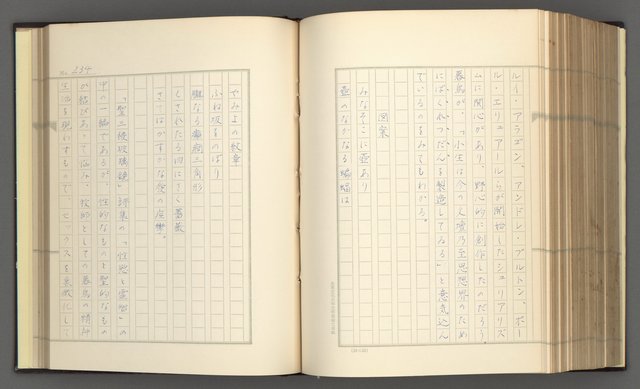 ルイ・アラゴン、アンドレ・ブルトン、ポー
ル・エリュアールらが開始したシュリアリズ
ムに関心があり、野心的に創作したのだろう。
暮鳥が、「小生は今の人嘘乃至思想界のため
にばくれつだんを製造してゐる」と意気込ん
でいるのをみてもわかる。
図案
みなそこに壺あり
壺のなかなる蝙蝠は
No. 234
やみよの紋章
ふね吸をのぼり
朧なる癲癇三角形
くされたる四にさく薔薇
さてはかすかな愛の痙攣。
「聖三稜玻璃鏡」詩集の「性慾と霊慾」の
中の一編であるが、性的なものと聖的なもの
が結びあって悩み、牧師としての暮鳥の精神
生活を現わすもので、セックスを象徴化し